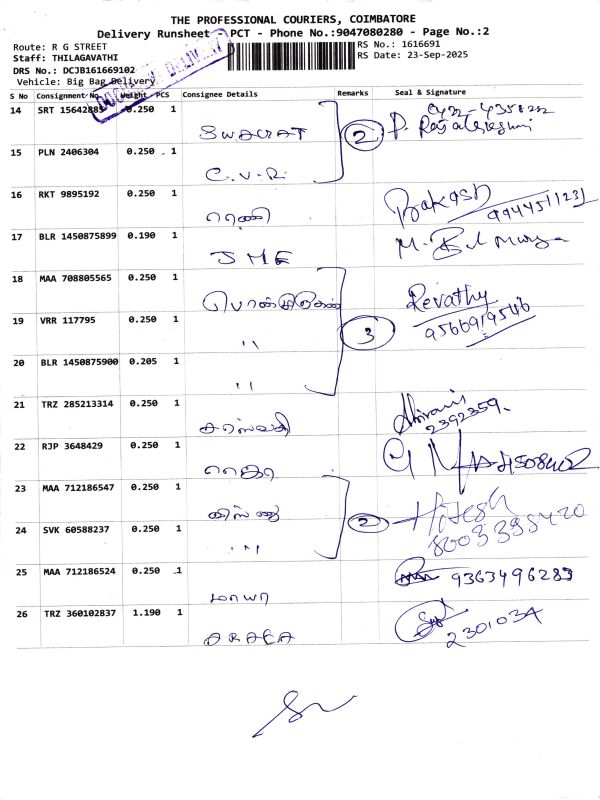 THE PROFESSIONAL COURIERS, COIMBATORE
Delivery Runsheet - PCT - Phone No.:9047080280 - Page No.:2
Route: R G STREET
Staff: THILAGAVATHI
DRS No.: DCJB161669102
Vehicle: Big Bag Delivery
RS No.: 1616691
RS Date: 23-Sep-2025
DOCUMENT DELIVERY
S No Consignment No. Weight PCS Consignee Details Remarks Seal & Signature
14 SRT 15642883 0.250 1 SWAGAT 2 P.
15 PLN 2406304 0.250 1 C.V.R.
16 RKT 9895192 0.250 1 ராணி Prakash 9944511231
17 BLR 1450875899 0.190 1 JME M.
18 MAA 708805565 0.250 1 3 Revathy
19 VRR 117795 0.250 1 " 9566919546
20 BLR 1450875900 0.205 1 "
21 TRZ 285213314 0.250 1 2392359.
22 RJP 3648429 0.250 1
23 MAA 712186547 0.250 1 2 Hitesh
24 SVK 60588237 0.250 1 " 8003398420
25 MAA 712186524 0.250 1 மாயா 9363496283
26 TRZ 360102837 1.190 1 2301034